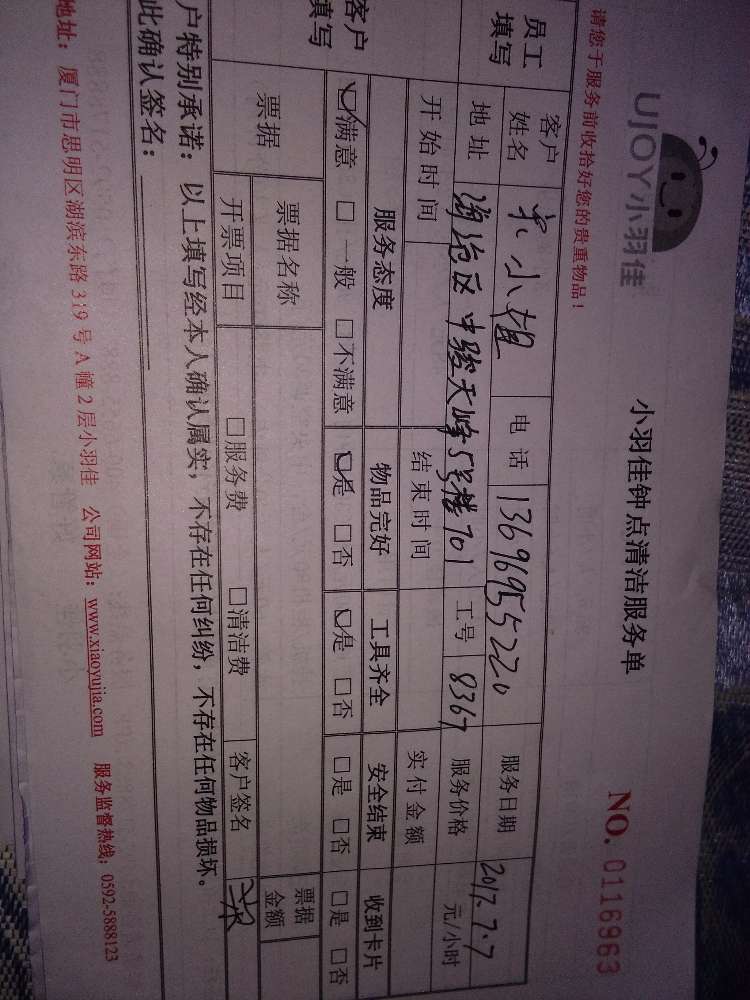 UJOY小羽佳
小羽佳钟点清洁服务单
NO. 0116963
请您于服务前收拾好您的贵重物品!
员工填写 客户姓名 宋小姐 电话 13696955220 服务日期 2017.7.7
地址 海沧区中骏天峰5号楼701 工号 8367 服务价格 元/小时
开始时间 结束时间 实付金额
客户填写 服务态度 物品完好 工具齐全 安全结束 收到卡片
☑满意 □一般 □不满意 ☑是 □否 ☑是 □否 □是 □否 □是 □否
票据 票据名称 票据金额
开票项目 □服务费 □清洁费 客户签名
户特别承诺:以上填写经本人确认属实,不存在任何纠纷,不存在任何物品损坏。
此确认签名:
地址:厦门市思明区湖滨东路319号A幢2层小羽佳 公司网站:www.xiaoyujia.com 服务监督热线:0592-5888123